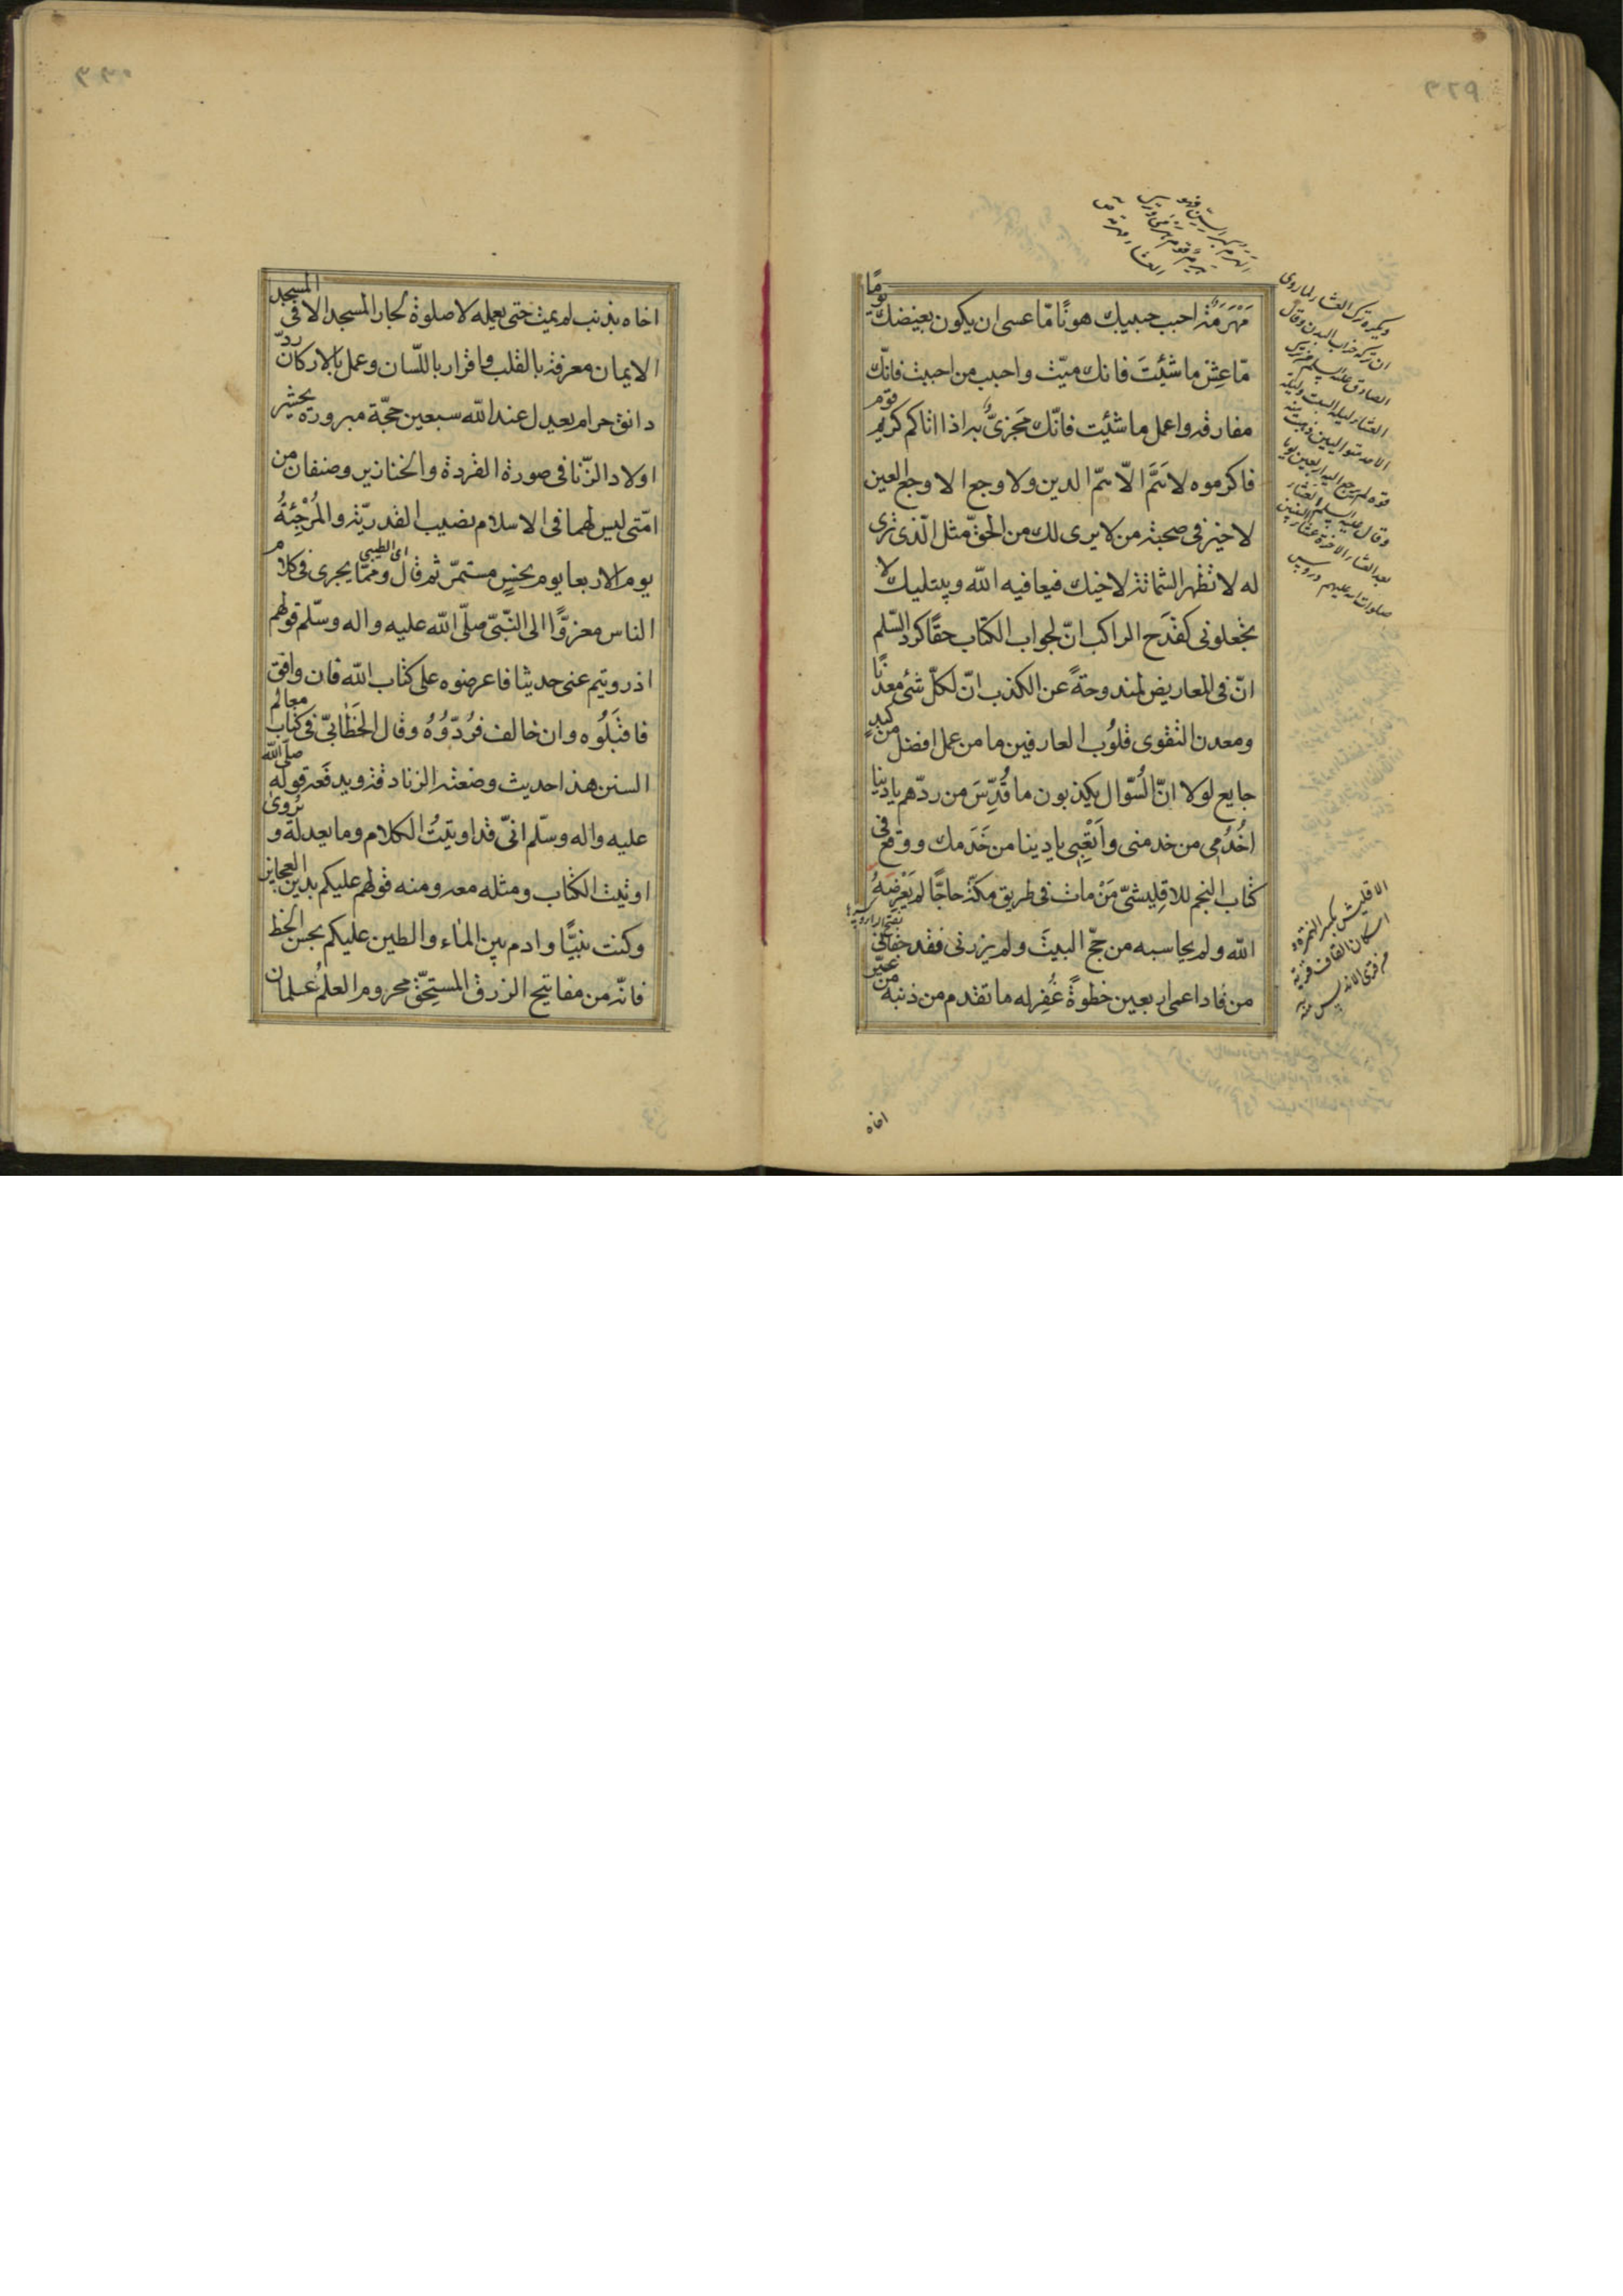 مَهْرَمَةٌ احبب حبيبك هونًا مّا عسى ان يكون بغيضك يومًا
مّا عِش ما شئِتَ فانك ميّت واحبب من احببت فانّك
مفارقه واعمل ما شئِت فانّك مَجزىٌّ به اذا اتاكم كريم قوم
فاكرموه لا هَمَّ الّا همّ الدين ولا وجع الا وجع العين
لا خير فى صحبة من لا يرى لك من الحقّ مثل الّذى ترى
له لا تظهر الشماتة لاخيك فيعافيه الله ويبتليك لا
تجعلونى كقَدَح الراكب انّ لجواب الكتاب حقّا كرد السّلم
انّ فى المعاريض لمندوحةً عن الكذب انّ لكلّ شئ معدنًا
ومعدن التقوى قلُوُب العارفين ما من عمل افضل من كبدٍ
جايع لولا انّ السُوّال يكذبون ما قُدِّسَ من ردّهم يا دنيا
اخُدُمِى من خدمنى واَتْعِبِى يا دنيا من خَدَمك ووقع فى
كتاب النجم للاقِليشىّ مَنْ مات فى طريق مكّة حاجًّا لم يَعْرِضهُ
الله ولم يحاسبه من حجّ البيتَ ولم يزرنى فقد جفانى
من قاد اعمى اربعين خطوةً غُفِر له ما تقدم من ذنبه من عيّر
اخاه
ويكره ترك العشاء لما روى
ان تركه خراب البدن وقال
الصادق عليه السلم من ترك
العشاء ليلة السبت وليلة
الاحد متواليين ذهبت منه
قوة لم ترجع اليه اربعين يوما
وقال عليه السلم العشاء
بعد العشاء الاخرة عشاء النبيين
صلوات الله عليهم دروس
الاقليش بكسر الهمزة و
اسكان القاف قرية
من قرى الاندلس منه
اخاه بذنب لم يمت حتى يعمله لا صلوة لجار المسجد الا فى المسجد
الايمان معرفة بالقلب واقرار باللّسان وعمل بالاركان ردّ
دانق حرام يعدل عند الله سبعين حجّة مبرورة يحشر
اولاد الزّنا فى صورة القردة والخنازير وصنفان من
امّتى ليس لهما فى الاسلام نصيب القدريّة والمُرْجِئةُ
يوم الاربعا يوم نحسٍ مستمرّ ثم قال اى الطيبى وممّا يجرى فى كلام
الناس معزوًّا الى النّبىّ صلّى الله عليه واله وسّلم قولهم
اذ رويتم عنى حديثا فاعرضوه على كتاب الله فان وافق
فاقبَلُوه وان خالف فرُدّوُهُ وقال الخَطّابىّ فى كتاب معالم
السنن هذا حديث وضعته الزنادقة ويدفَعه قوله صلّى الله
عليه واله وسلّم انىّ قد اوتيتُ الكلام وما يعدله و يُروى
اوتيت الكتاب ومثله معه ومنه قولهم عليكم بدين العجايز
وكنت نبيًّا وادم بين المآء والطين عليكم بحسن الخظ
فانّه من مفاتيح الرزق المستحِقّ محروم العلمُ علمان